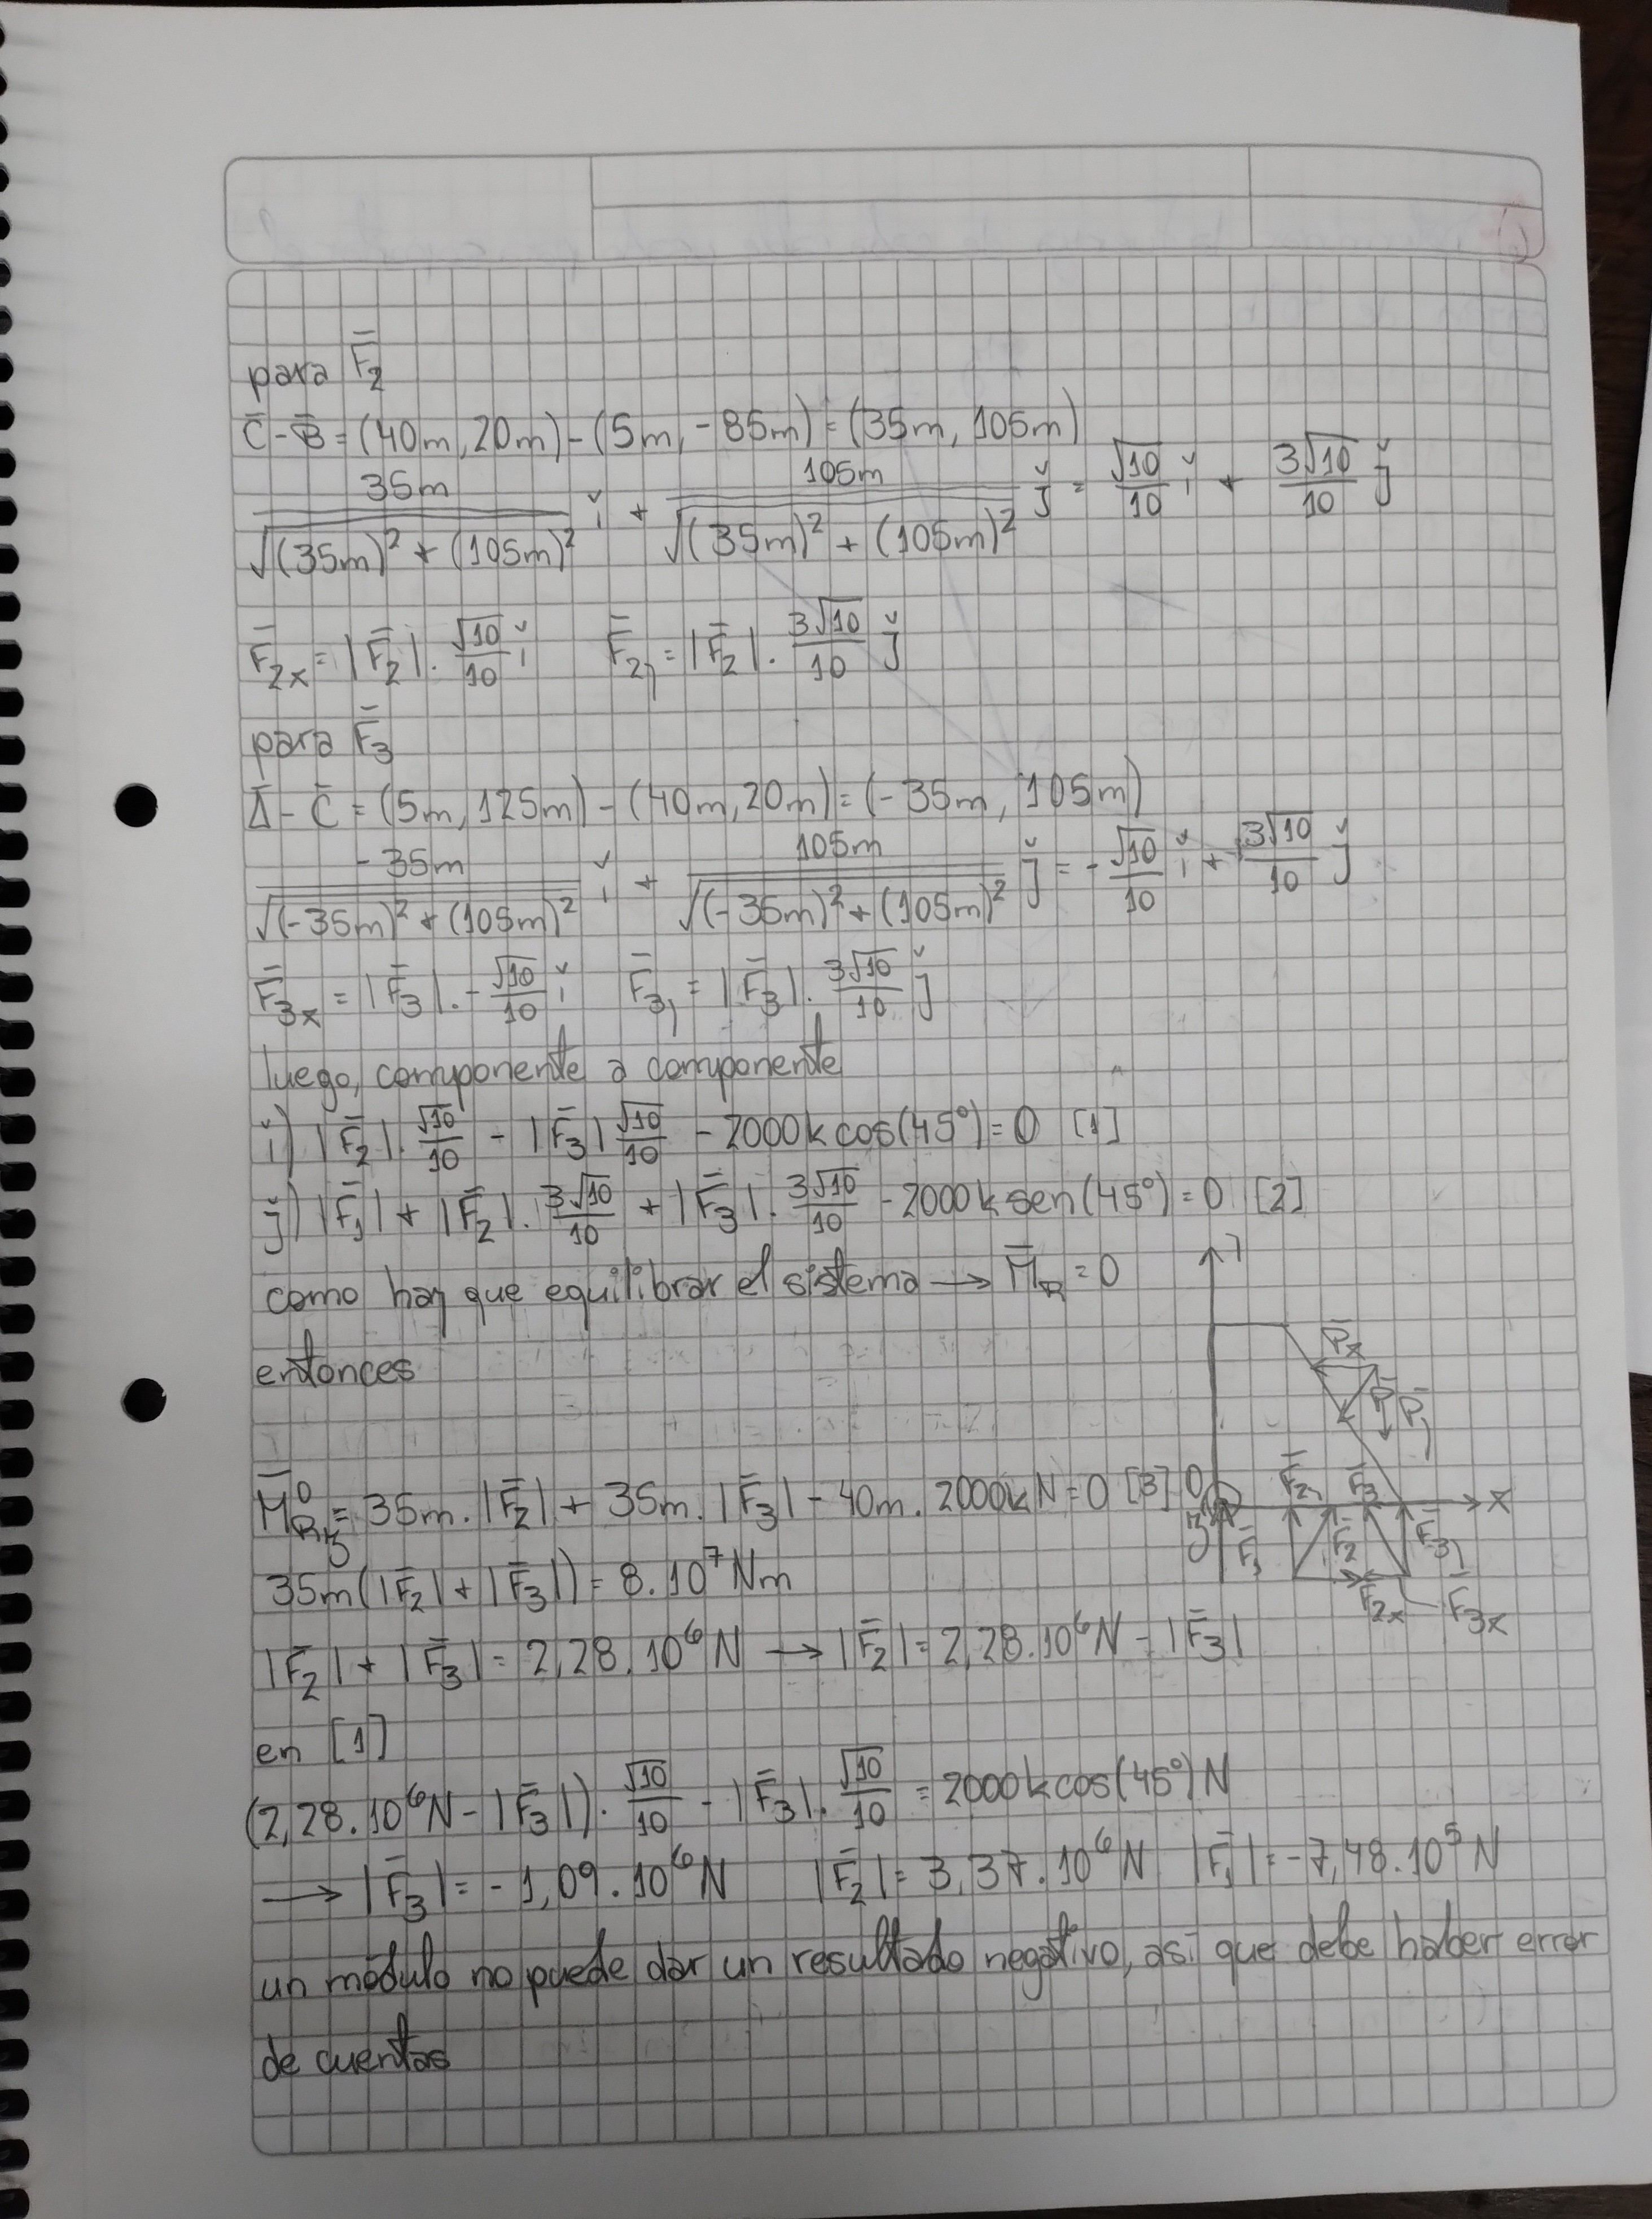 para F̄₂
C̄ - B̄ = (40m, 20m) - (5m, -85m) = (35m, 105m)
35m / √((35m)² + (105m)²) ǐ + 105m / √((35m)² + (105m)²) ǰ = √10/10 ǐ + 3√10/10 ǰ
F̄₂ₓ = |F̄₂| . √10/10 ǐ F̄₂y = |F̄₂| . 3√10/10 ǰ
para F̄₃
Ā - C̄ = (5m, 125m) - (40m, 20m) = (-35m, 105m)
-35m / √((-35m)² + (105m)²) ǐ + 105m / √((-35m)² + (105m)²) ǰ = - √10/10 ǐ + 3√10/10 ǰ
F̄₃ₓ = |F̄₃| . - √10/10 ǐ F̄₃y = |F̄₃| . 3√10/10 ǰ
luego, componente a componente
ǐ) |F̄₂| . √10/10 - |F̄₃| √10/10 - 2000k cos(45°) = 0 [1]
ǰ) |F̄₁| + |F̄₂| . 3√10/10 + |F̄₃| . 3√10/10 - 2000k sen(45°) = 0 [2]
como hay que equilibrar el sistema → M̄_R = 0
entonces
y
P̄ₓ
P̄
P̄y
M̄⁰_Rz = 35m . |F̄₂| + 35m . |F̄₃| - 40m . 2000kN = 0 [3]
0
F̄₂y
F̄₃
x
z
F̄₁
F̄₂
F̄₃y
F̄₂ₓ
F̄₃ₓ
35m (|F̄₂| + |F̄₃|) = 8 . 10⁷ Nm
|F̄₂| + |F̄₃| = 2,28 . 10⁶ N → |F̄₂| = 2,28 . 10⁶ N - |F̄₃|
en [1]
(2,28 . 10⁶ N - |F̄₃|) . √10/10 - |F̄₃| . √10/10 = 2000k cos(45°) N
→ |F̄₃| = -1,09 . 10⁶ N |F̄₂| = 3,37 . 10⁶ N |F̄₁| = -7,48 . 10⁵ N
un módulo no puede dar un resultado negativo, así que debe haber error
de cuentas